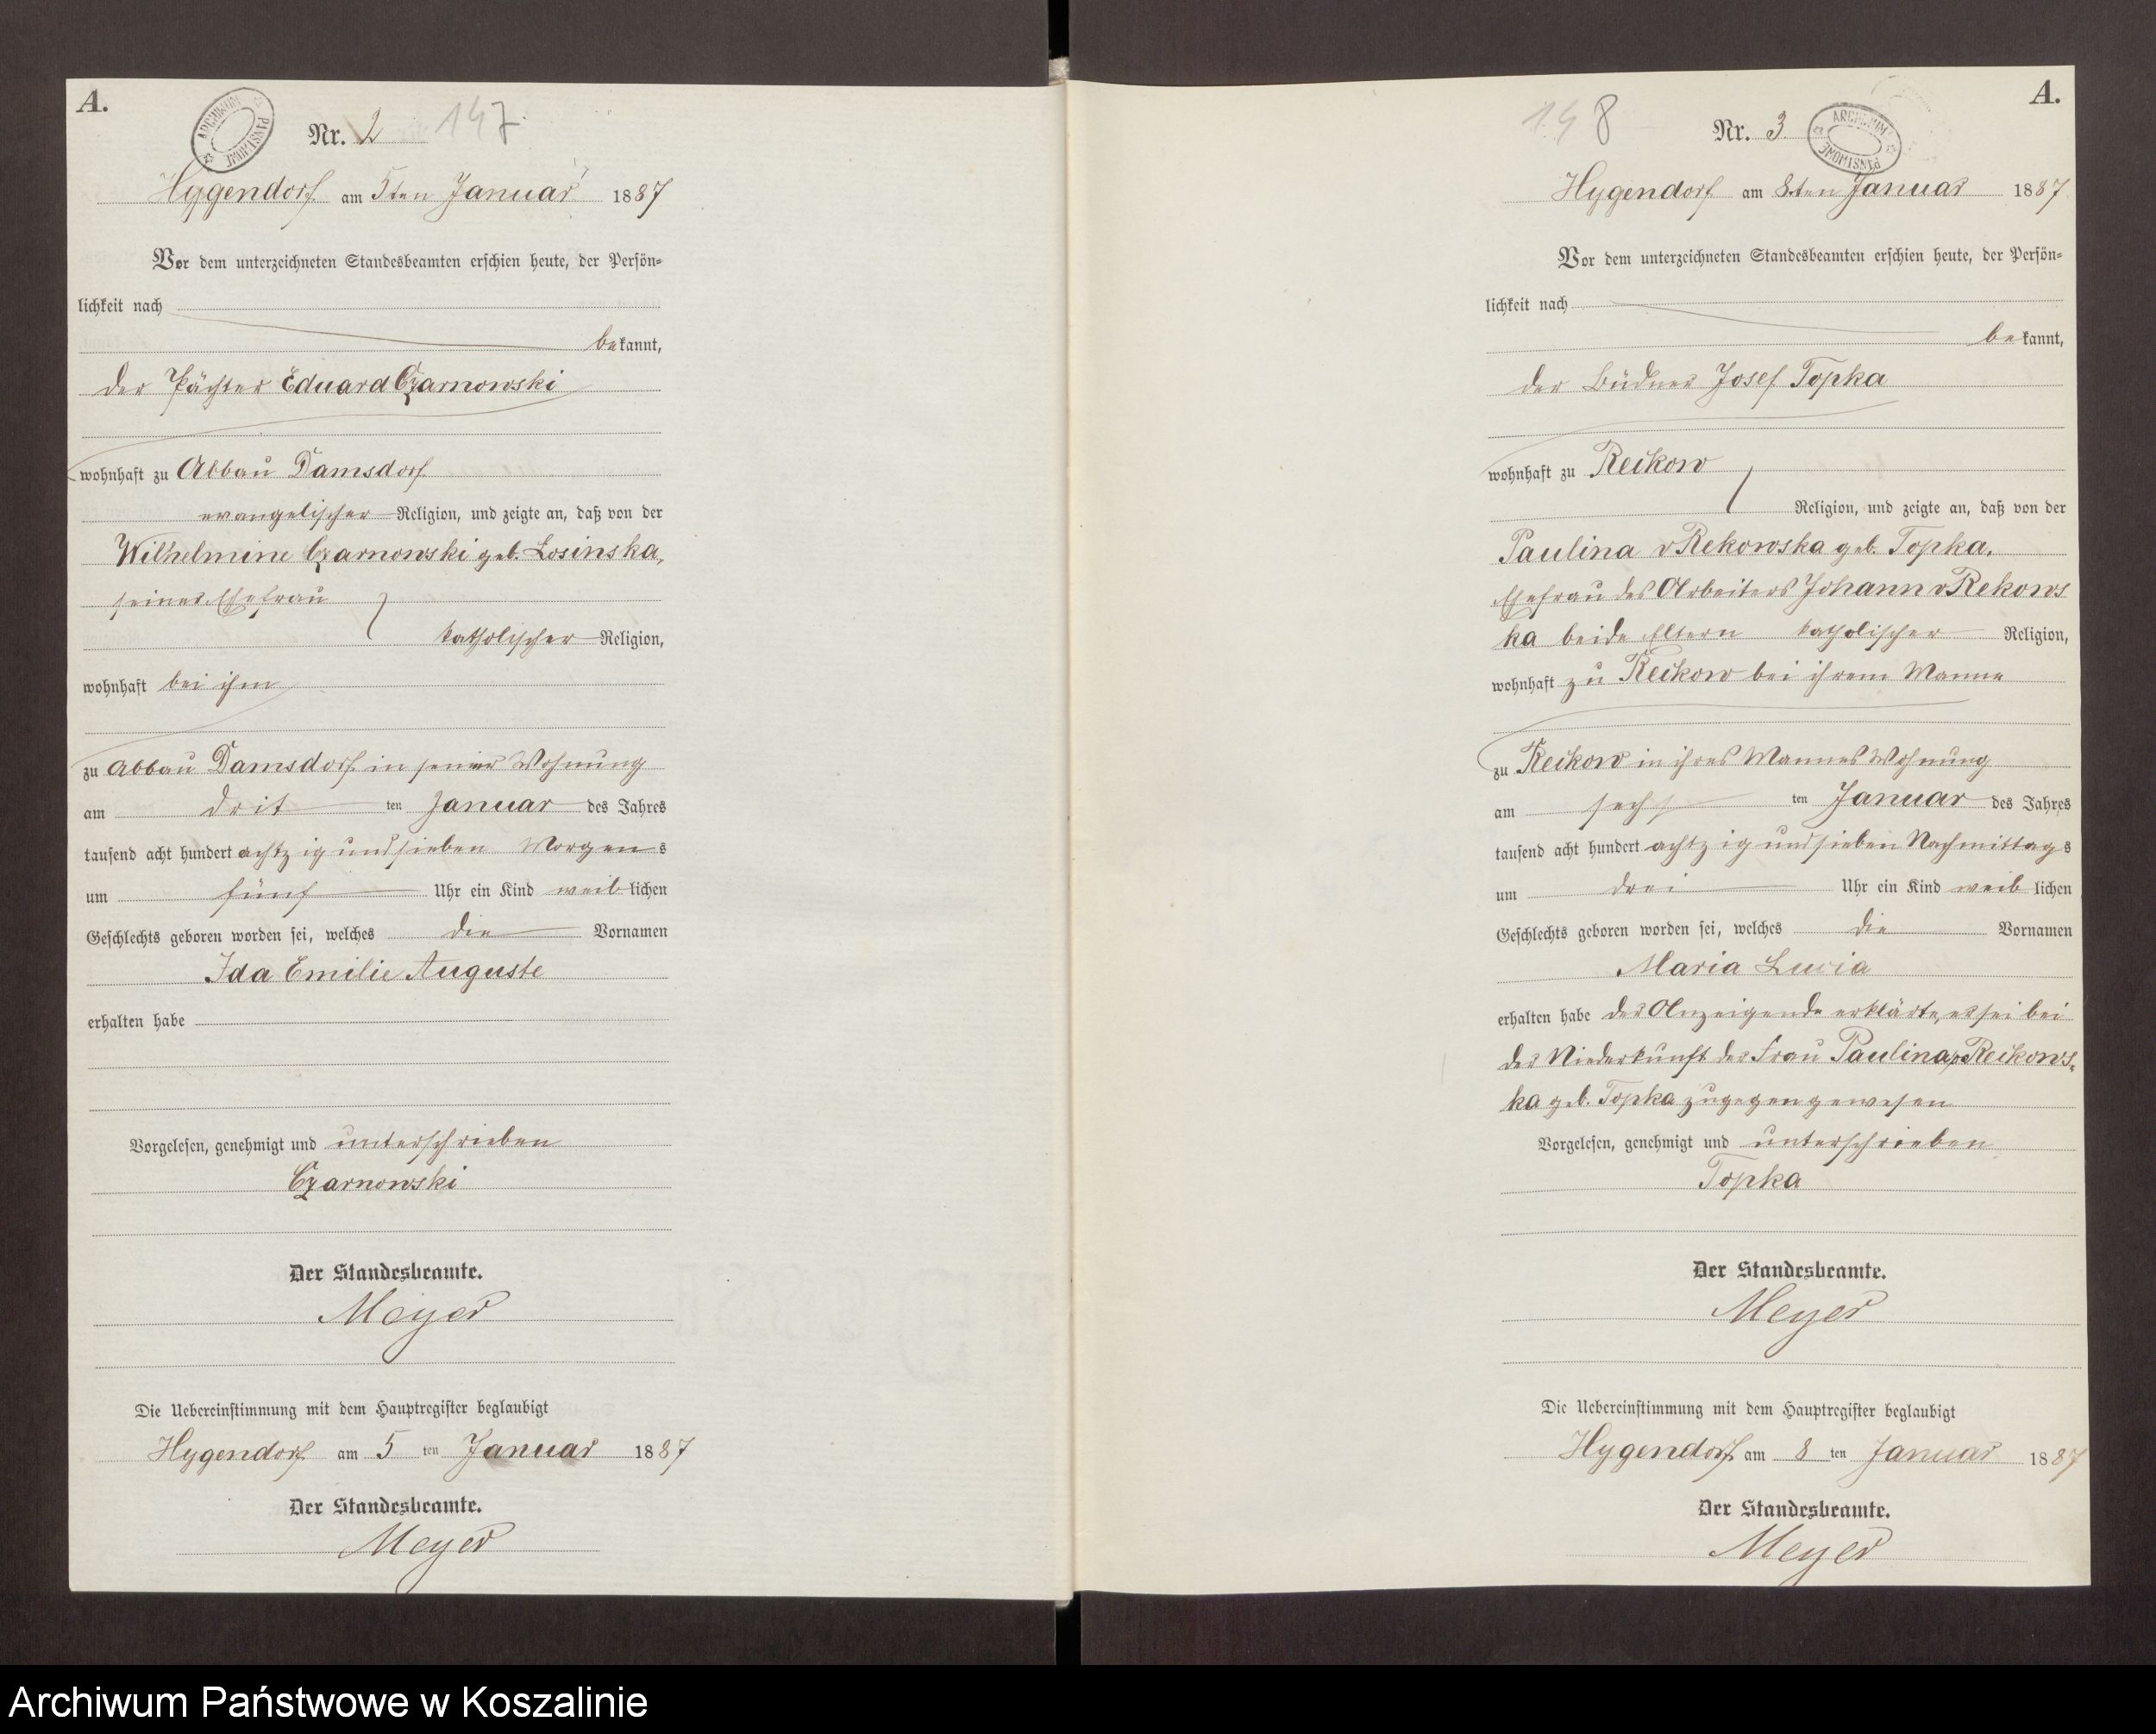 A.
ARCHIWUM PAŃSTWOWE
Nr. 2 147
Hygendorf am 5ten Januar 1887
Vor dem unterzeichneten Standesbeamten erschien heute, der Persön-
lichkeit nach
bekannt,
der Pächter Eduard Czarnowski
wohnhaft zu Abbau Damsdorf
evangelischer Religion, und zeigte an, daß von der
Wilhelmine Czarnowski geb. Losinska,
seiner Ehefrau
katholischer Religion,
wohnhaft bei ihm
zu Abbau Damsdorf in seiner Wohnung
am drit ten Januar des Jahres
tausend acht hundert achtzig und sieben Morgens
um fünf Uhr ein Kind weiblichen
Geschlechts geboren worden sei, welches die Vornamen
Ida Emilie Auguste
erhalten habe
Vorgelesen, genehmigt und unterschrieben
Czarnowski
Der Standesbeamte.
Meyer
Die Uebereinstimmung mit dem Hauptregister beglaubigt
Hygendorf am 5 ten Januar 1887
Der Standesbeamte.
Meyer
A.
148 Nr. 3
ARCHIWUM PAŃSTWOWE
Hygendorf am 8ten Januar 1887
Vor dem unterzeichneten Standesbeamten erschien heute, der Persön-
lichkeit nach
bekannt,
der Büdner Josef Topka
wohnhaft zu Reikow
Religion, und zeigte an, daß von der
Paulina v Rekowska geb. Topka.
Ehefrau des Arbeiters Johann v Rekows
ka beide Eltern katholischer Religion,
wohnhaft zu Reikow bei ihrem Manne
zu Reikow in ihres Mannes Wohnung
am sechs ten Januar des Jahres
tausend acht hundert achtzig und sieben Nachmittags
um drei Uhr ein Kind weiblichen
Geschlechts geboren worden sei, welches die Vornamen
Maria Lucia
erhalten habe der Anzeigende erklärte, er sei bei
der Niederkunft der Frau Paulina v Reikows-
ka geb. Topka zugegen gewesen
Vorgelesen, genehmigt und unterschrieben
Topka
Der Standesbeamte.
Meyer
Die Uebereinstimmung mit dem Hauptregister beglaubigt
Hygendorf am 8 ten Januar 1887
Der Standesbeamte.
Meyer
Archiwum Państwowe w Koszalinie